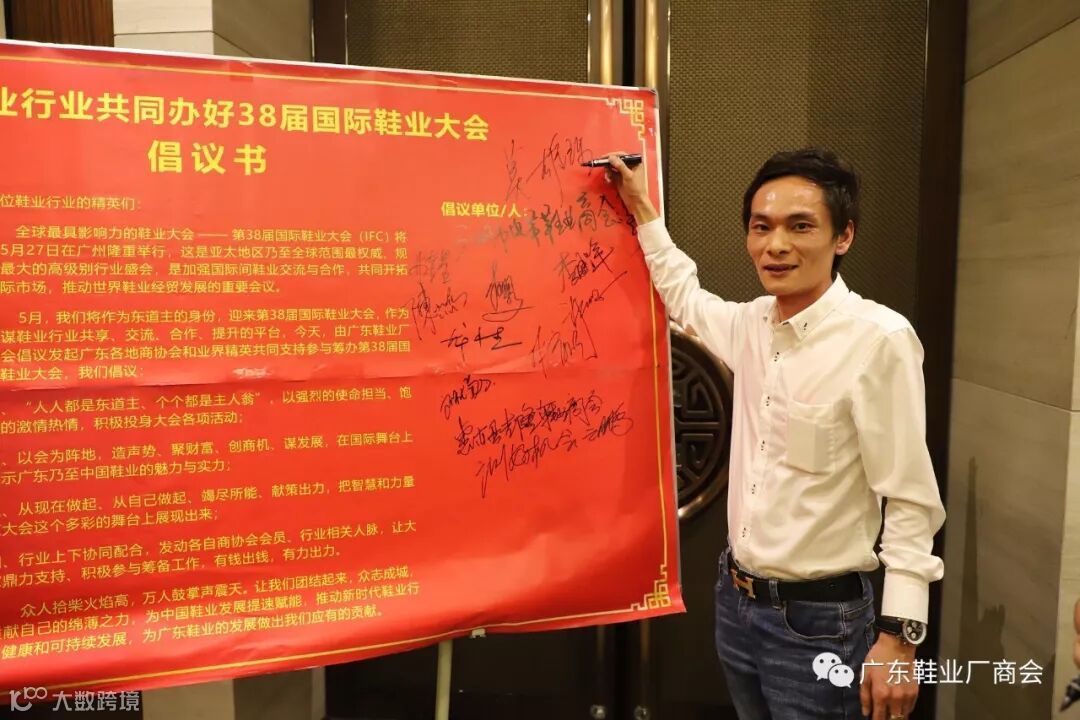 业行业共同办好38届国际鞋业大会
倡议书
位鞋业行业的精英们：
全球最具影响力的鞋业大会 —— 第38届国际鞋业大会（IFC）将
5月27日在广州隆重举行，这是亚太地区乃至全球范围最权威、规
最大的高级别行业盛会，是加强国际间鞋业交流与合作，共同开拓
际市场，推动世界鞋业经贸发展的重要会议。
5月，我们将作为东道主的身份，迎来第38届国际鞋业大会，作为
谋鞋业行业共享、交流、合作、提升的平台，今天，由广东鞋业厂
会倡议发起广东各地商协会和业界精英共同支持参与筹办第38届国
鞋业大会，我们倡议：
、“人人都是东道主、个个都是主人翁”，以强烈的使命担当、饱
的激情热情，积极投身大会各项活动；
、以会为阵地，造声势、聚财富、创商机、谋发展，在国际舞台上
示广东乃至中国鞋业的魅力与实力；
、从现在做起、从自己做起、竭尽所能、献策出力，把智慧和力量
大会这个多彩的舞台上展现出来；
、行业上下协同配合，发动各自商协会会员、行业相关人脉，让大
鼎力支持、积极参与筹备工作，有钱出钱，有力出力。
众人拾柴火焰高，万人鼓掌声震天。让我们团结起来，众志成城，
献自己的绵薄之力，为中国鞋业发展提速赋能，推动新时代鞋业行
健康和可持续发展，为广东鞋业的发展做出我们应有的贡献。
倡议单位/人：
大数跨境
广东鞋业厂商会